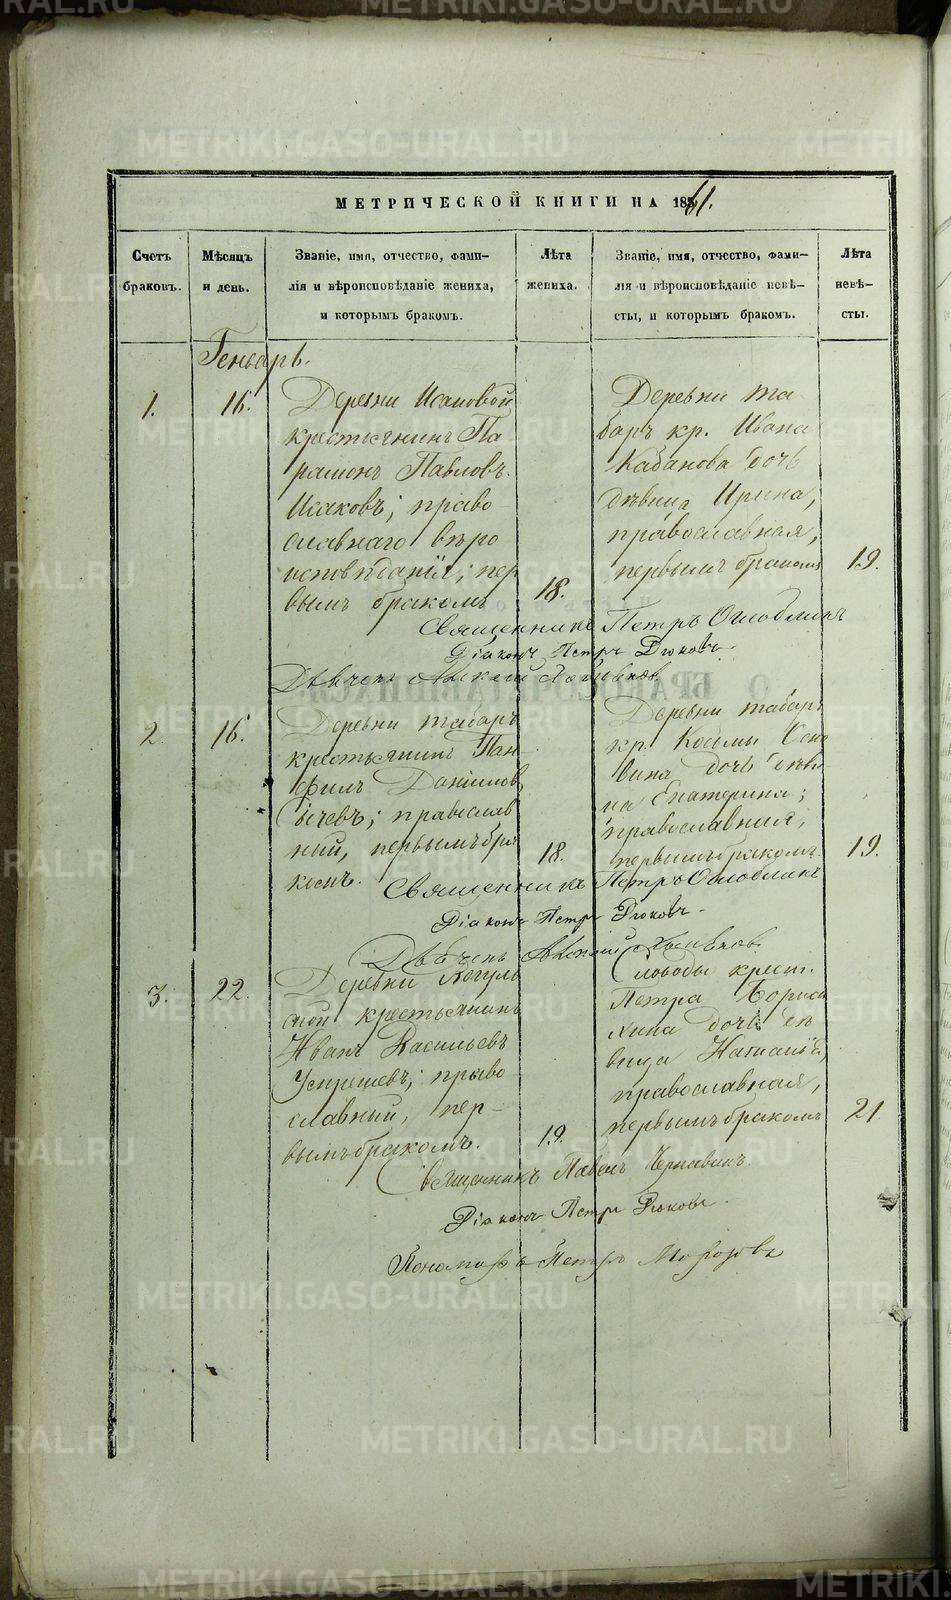 МЕТРИЧЕСКОЙ КНИГИ НА 1861.
Счетъ браковъ.
Мѣсяцъ и день.
Званіе, имя, отчество, фами-
лія и вѣроисповѣданіе жениха,
и которымъ бракомъ.
Лѣта жениха.
Званіе, имя, отчество, фами-
лія и вѣроисповѣданіе невѣ-
сты, и которымъ бракомъ.
Лѣта невѣ-
сты.
Генварь.
1.
16.
Деревни Исаковой
крестьянинъ Па-
рамонъ Павловъ
Исаковъ; право
славнаго вѣро
исповѣданія; пер
вымъ бракомъ
18.
Деревни та
баръ кр. Ивана
Кабанова дочь
дѣвица Ирина,
православная,
первымъ бракомъ
19.
Священникъ Петръ Оглоблинъ
Діаконъ Петръ Рюковъ
2.
16.
Деревни табаръ
крестьянинъ Пан
филъ Даниловъ
Сычевъ; православ
ный, первымъ бра
комъ.
18.
Деревни табаръ
кр. Косьмы
дочь дѣви
ца Екатерина;
православная,
первымъ бракомъ.
19.
Священникъ Петръ Оглоблинъ
Діаконъ Петръ Рюковъ.
3.
22.
Деревни Вогуль
ской крестьянинъ
Иванъ Васильевъ
православный, пер-
вымъ бракомъ.
19.
Слободы крест.
Петра Борис
хина дочь дѣ
вица Наталія,
православная,
первымъ бракомъ
21.
Священникъ Павелъ Чернавинъ.
Діаконъ Петръ Рюковъ.
Пономарь Петръ Морозовъ
METRIKI.GASO-URAL.RU